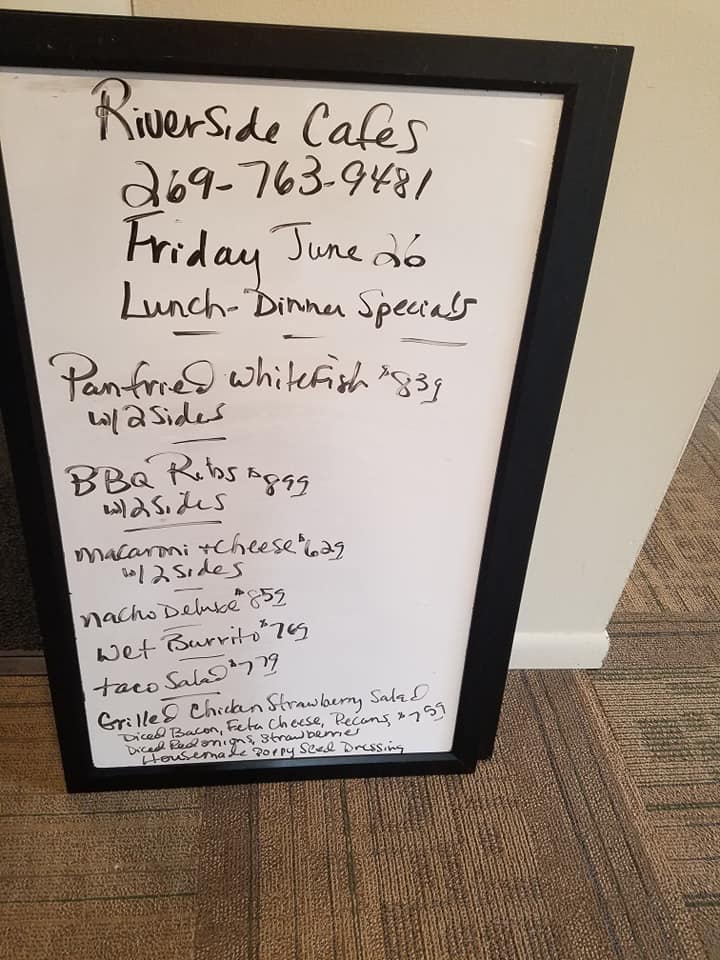 Riverside Cafes
269-763-9481
Friday June 26
Lunch-Dinner Specials
Panfried Whitefish $839
w/2 Sides
BBQ Ribs $899
w/2 Sides
macaroni + Cheese $629
w/2 Sides
nacho Deluxe $859
Wet Burrito $769
taco Salad $779
Grilled Chicken Strawberry Salad
Diced Bacon, Feta Cheese, Pecans, $759
Diced Red onions, Strawberries
Housemade Poppy Seed Dressing